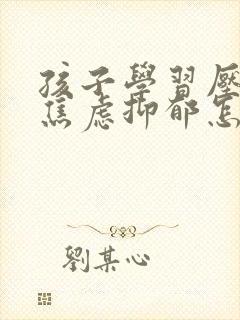 孩子學習壓
焦虑抑郁怎
劉某心